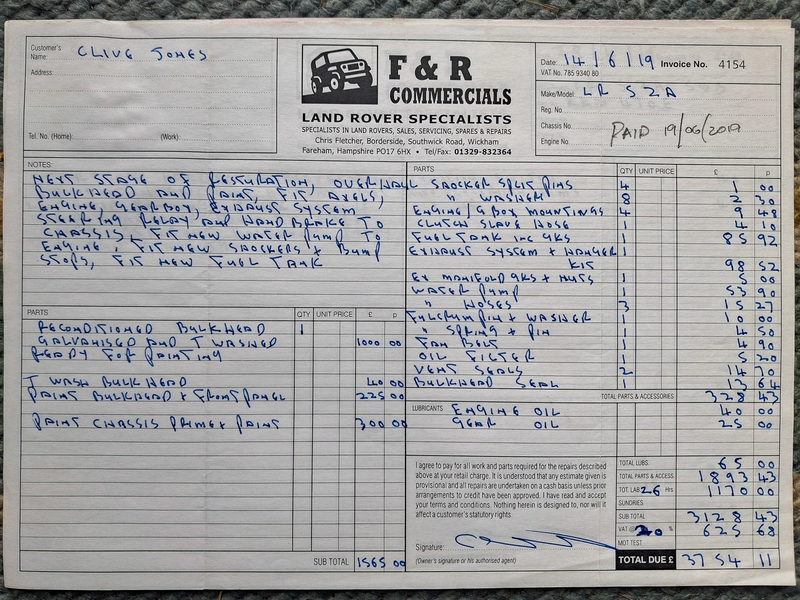 Customer's Name: CLIVE JONES
Address:
Tel. No. (Home): (Work):
F & R
COMMERCIALS
LAND ROVER SPECIALISTS
SPECIALISTS IN LAND ROVERS, SALES, SERVICING, SPARES & REPAIRS
Chris Fletcher, Borderside, Southwick Road, Wickham
Fareham, Hampshire PO17 6HX • Tel/Fax: 01329-832364
Date: 14/6/19 Invoice No. 4154
VAT No. 785 9340 80
Make/Model LR S2A
Reg. No.
Chassis No.
Engine No.
PAID 19/06/2019
NOTES:
NEXT STAGE OF RESTURATION, OVERHALL
BULKHEAD AND PAINT, FIT AXELS,
ENGINE, GEARBOX EXHAUST SYSTEM
STEERING RELAY, AND HAND BRAKE TO
CHASSIS, FIT NEW WATER PUMP TO
ENGINE, FIT NEW SHOCKERS & BUMP
STOPS, FIT NEW FUEL TANK
PARTS QTY UNIT PRICE £ p
RECONDITIONED BULKHEAD 1
GALVANISED AND T WASHED 1000 00
READY FOR PAINTING
T WASH BULKHEAD 40 00
PAINT BULKHEAD & FRONT PANEL 225 00
PAINT CHASSIS PRIME & PAINT 300 00
SUB TOTAL 1565 00
PARTS QTY UNIT PRICE £ p
SHOCKER SPLIT PINS 4 1 00
" WASHER 8 2 30
ENGINE/GBOX MOUNTINGS 4 9 48
CLUTCH SLAVE HOSE 1 4 10
FUEL TANK INC GKS 1 85 92
EXHAUST SYSTEM & HANGER 1
KIT 98 52
EX MANIFOLD GKS & NUTS 1 5 00
WATER PUMP 1 53 90
" HOSES 3 15 27
FULCRUM PIN & WASHER 1 10 00
" SPRING & PIN 1 4 50
FAN BELT 1 4 90
OIL FILTER 1 5 20
VENT SEALS 2 14 70
BULKHEAD SEAL 1 13 64
TOTAL PARTS & ACCESSORIES 328 43
LUBRICANTS ENGINE OIL 40 00
GEAR OIL 25 00
I agree to pay for all work and parts required for the repairs described
above at your retail charge. It is understood that any estimate given is
provisional and all repairs are undertaken on a cash basis unless prior
arrangements to credit have been approved. I have read and accept
your terms and conditions. Nothing herein is designed to, nor will it
affect a customer's statutory rights.
Signature:
(Owner's signature or his authorised agent)
TOTAL LUBS. 65 00
TOTAL PARTS & ACCESS 1893 43
TOT LAB 26 Hrs 1170 00
SUNDRIES
SUB TOTAL 3128 43
VAT @ 20 % 625 68
MOT TEST
TOTAL DUE £ 3754 11